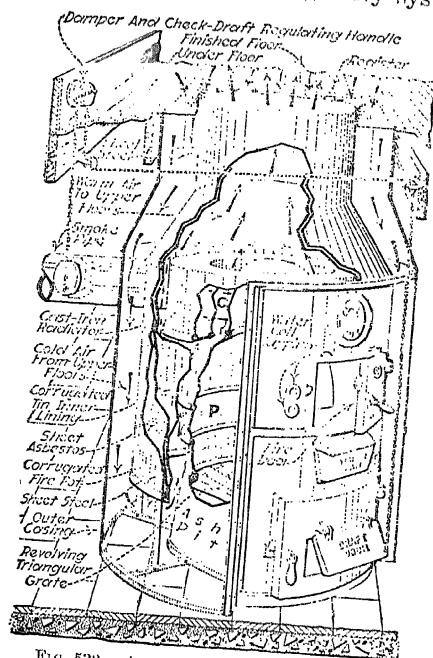 Damper And Check-Draft Regulating Handle
Finished Floor
Under Floor
Register
Warm Air
To Upper
Floors
Smoke
Pipe
Cast-Iron
Radiator
Cold Air
From Upper
Floors
Corrugated
Tin Inner
Lining
Sheet
Asbestos
Corrugated
Fire Pot
Sheet Steel
Outer
Casing
Revolving
Triangular
Grate
C
Water
P
Fire
Door
Ash
Pit